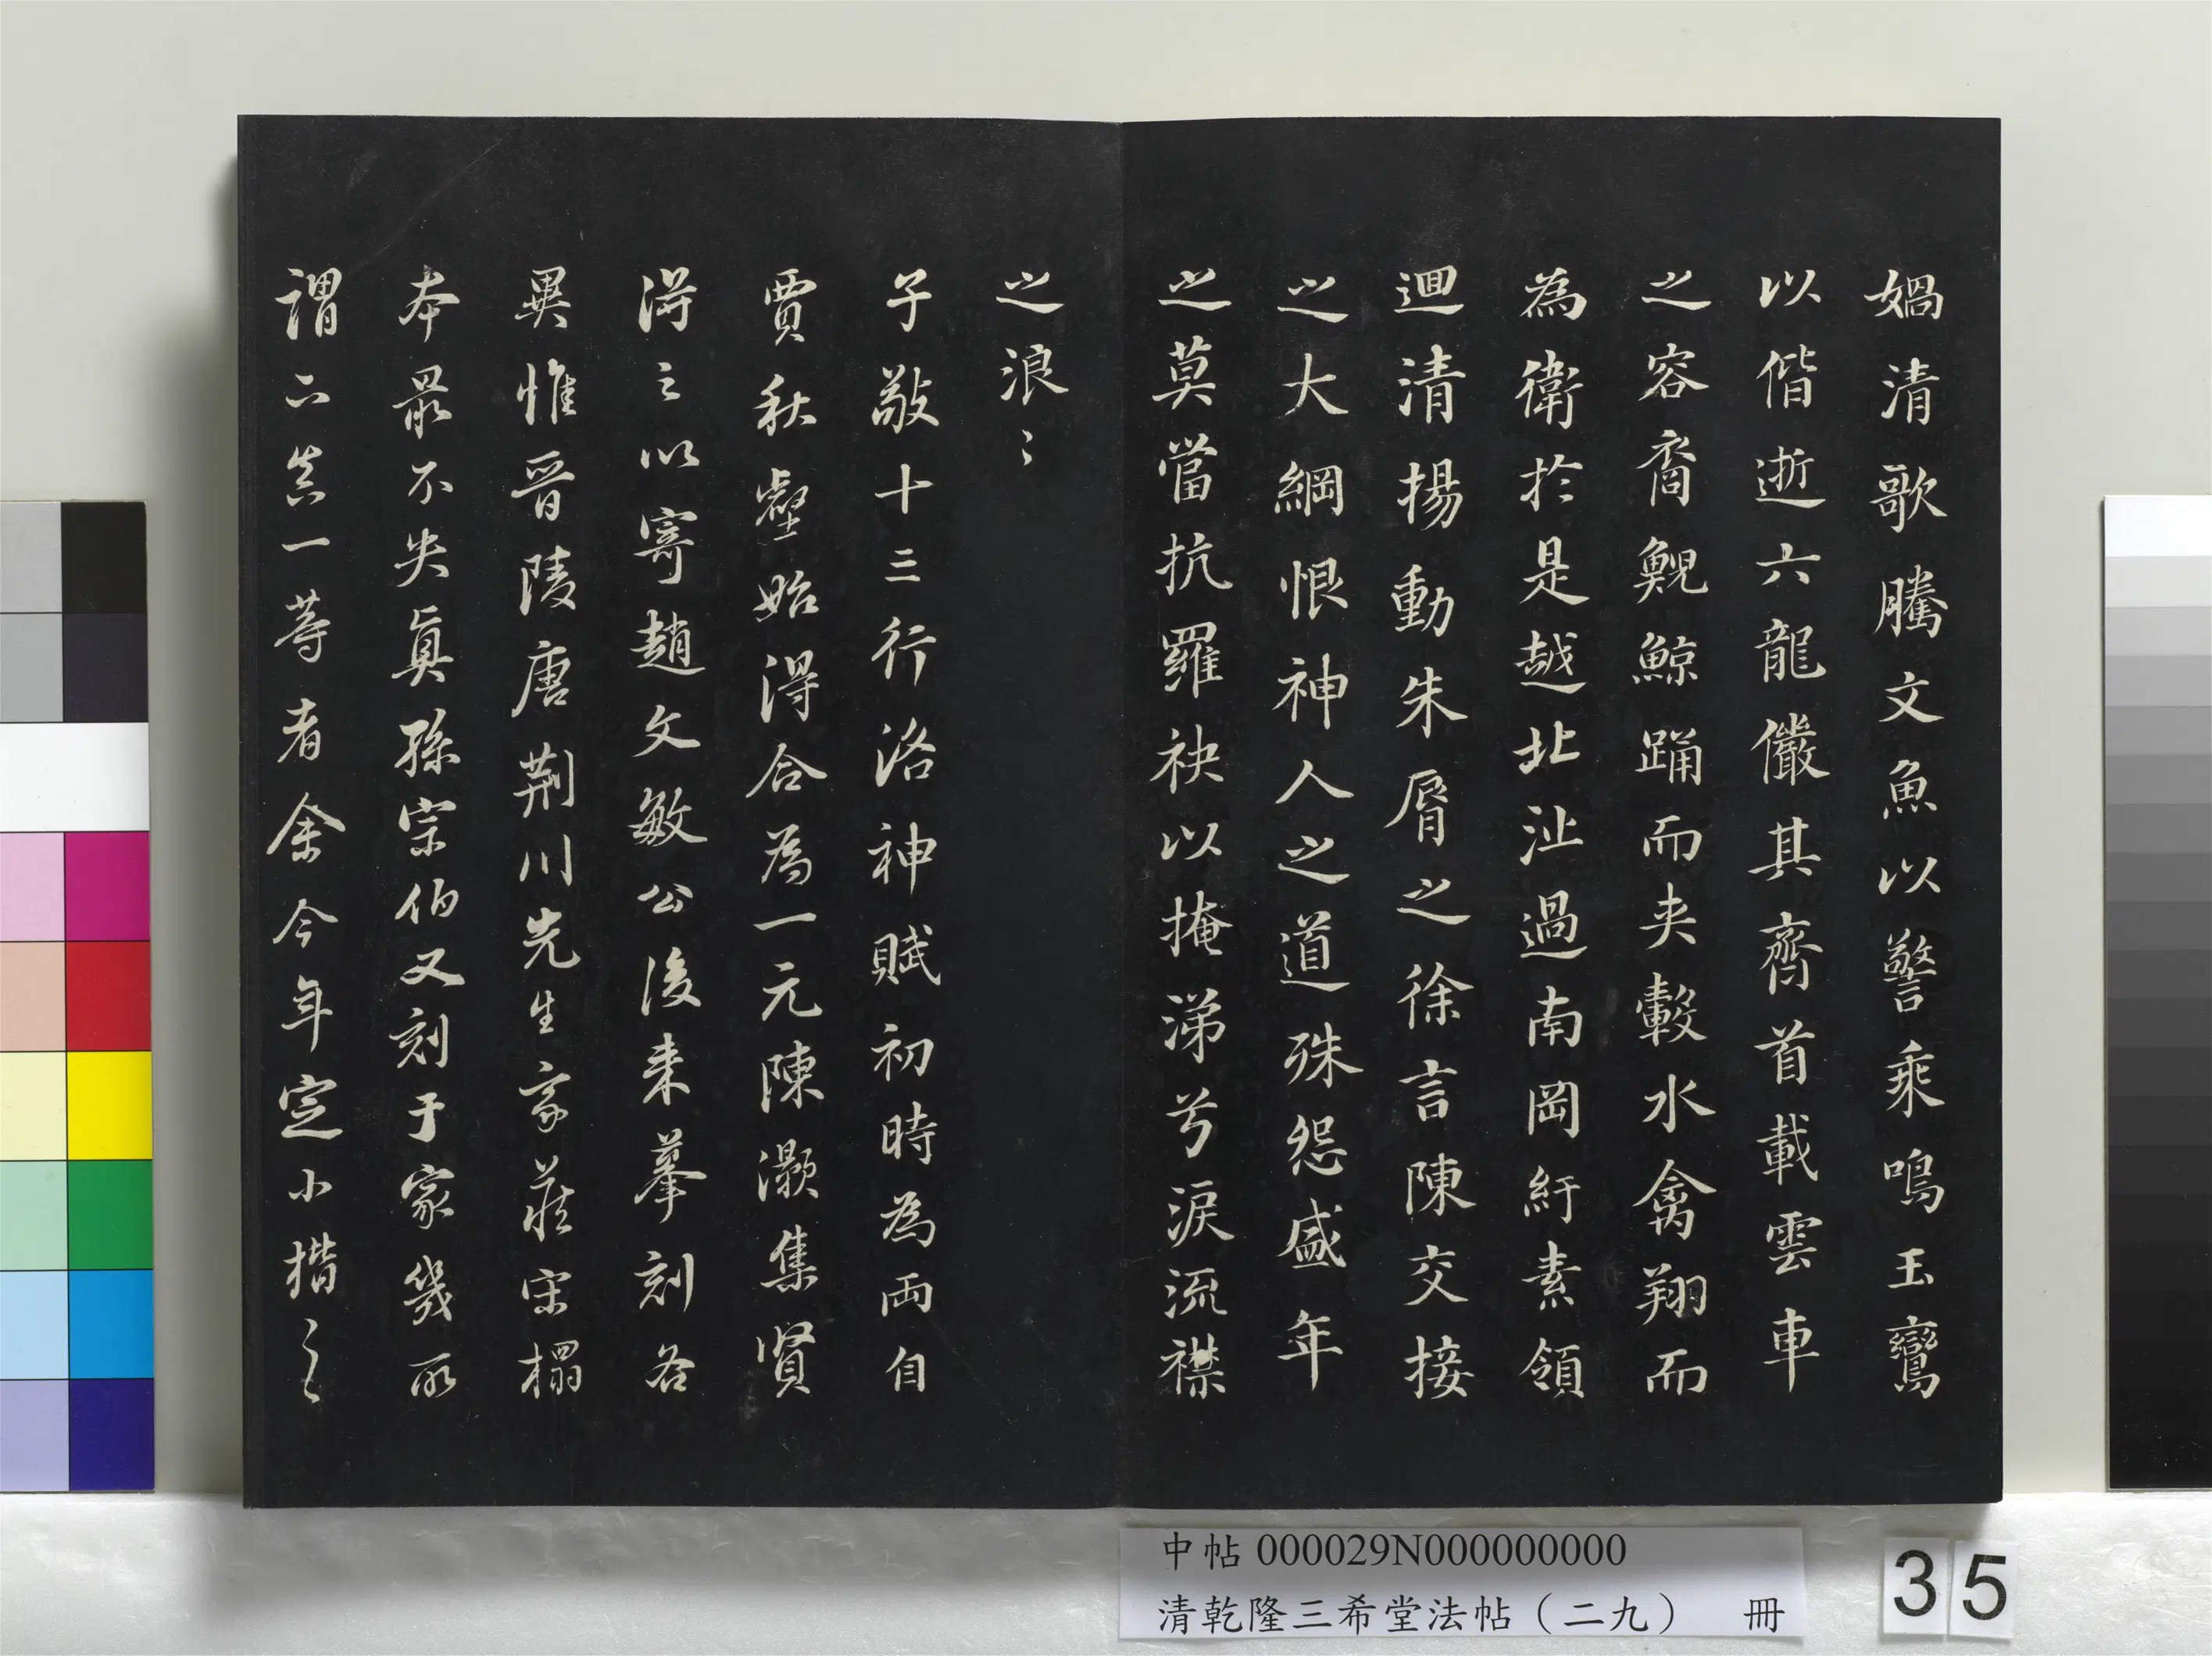 媧清歌騰文魚以警乘鳴玉鸞
以偕逝六龍儼其齊首載雲車
之容裔鯢鯨踊而夾轂水禽翔而
為衛於是越北沚過南岡紆素領
迴清揚動朱脣之徐言陳交接
之大綱恨神人之道殊怨盛年
之莫當抗羅袂以掩涕兮淚流襟
之浪〻
子敬十三行洛神賦初時為兩自
賈秋壑始得合為一元陳灝集賢
得之以寄趙文敏公後来摹刻各
異惟晉陵唐荆川先生家藏宋榻
本最不失真孫宗伯又刻于家幾所
謂下真一等者余今年定小楷之
中帖 000029N000000000
清乾隆三希堂法帖（二九） 冊
35